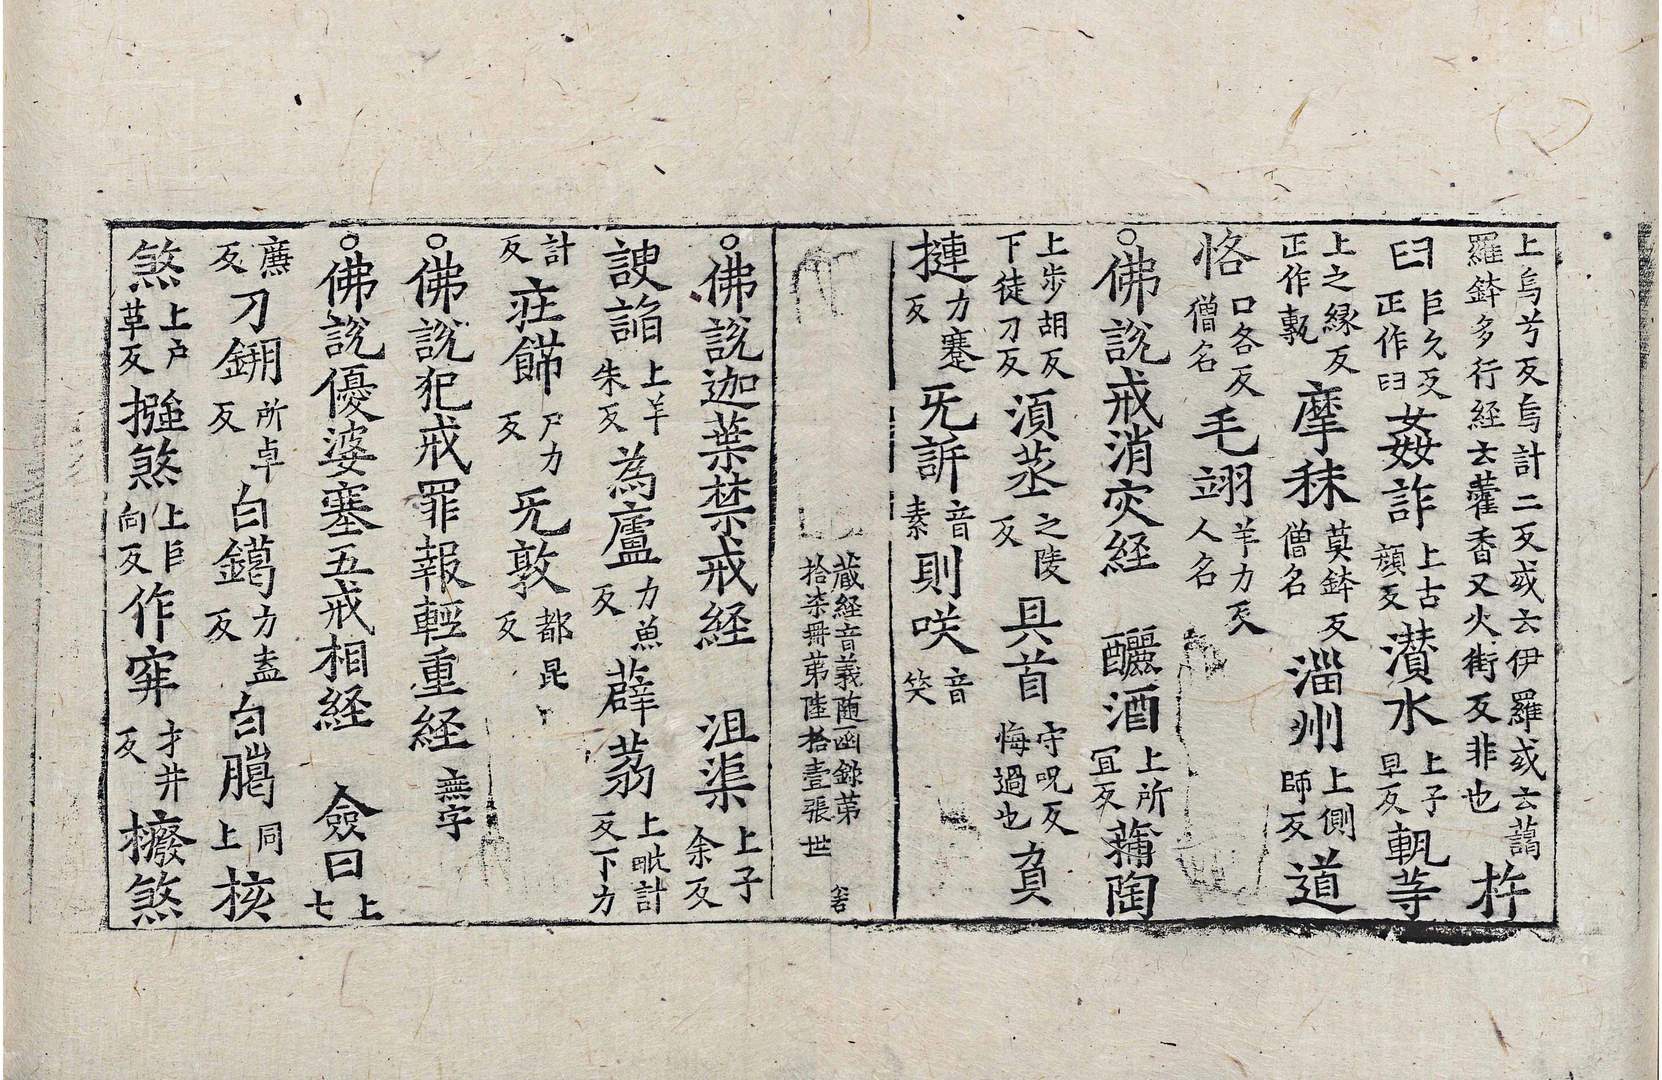 上烏兮反烏計二反或云伊羅或云藹羅鉢多行経云藿香又火街反非也 杵
臼 巨久反正作臼 姦詐 上古顔反 濽水 上子旦反 軏䓁
上之縁反正作甎 摩秣 莫鉢反僧名 淄州 上側師反 道
恪 口各反僧名 毛翊 羊力反人名
○佛說戒消灾経 釃酒 上所冝反 蒱陶
上步胡反下徒刀反 湏蒸 之陵反 具首 守呪反悔過也 負
摙 力蹇反 旡訴 音素 則咲 音笑
蔵経音義随函錄苐拾柒冊苐陸拾壹張 世
○佛說迦葉禁戒経 沮渠 上子余反
諛諂 上羊朱反 為廬 力魚反 薜荔 上毗計反下力
計反 莊飾 尸力反 旡敦 都昆反
○佛說犯戒罪報輕重経 無字
○佛說優婆塞五戒相経 僉曰 上七
廉反 刀鎙 所卓反 白鑞 力盍反 白臈 同上 核
煞 上戶革反 摾煞 上巨向反 作穽 才井反 撥煞